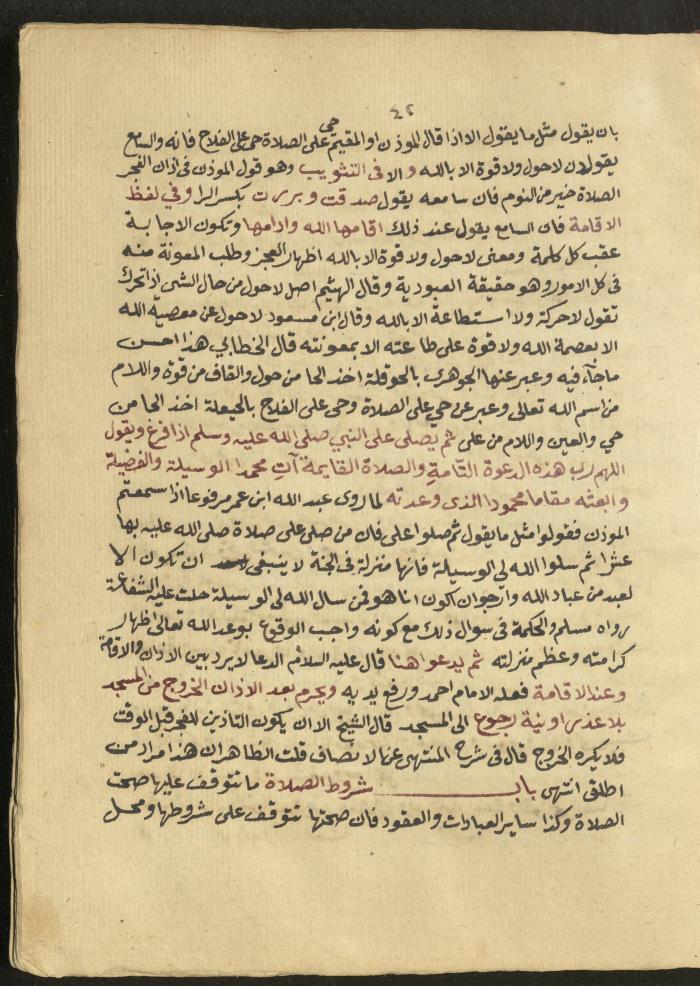 ٤٢
بان يقول مثل ما يقول الا اذا قال الموذن او المقيم حي على الصلاة حي على الفلاح فانه والسامع
يقولان لاحول ولا قوة الا بالله والا في التثويب وهو قول الموذن في اذان الفجر
الصلاة خير من النوم فان سامعه يقول صدقت وبررت بكسر الرا وفي لفظ
الاقامة فان السامع يقول عند ذلك اقامها الله وادامها وتكون الاجابة
عقب كل كلمة ومعنى لاحول ولا قوة الا بالله اظهار العجز وطلب المعونة منه
في كل الامور وهو حقيقة العبودية وقال الهيثم اصل لاحول من حال الشى اذا تحرك
تقول لا حركة ولا استطاعة الا بالله وقال ابن مسعود لاحول عن معصية الله
الا بعصمة الله ولا قوة على طاعته الا بمعونته قال الخطابي هذا احسن
ما جآء فيه وعبر عنها الجوهرى بالحوقلة اخذ الحا من حول والقاف من قوة واللام
من اسم الله تعالى وعبر عن حي على الصلاة وحي على الفلاح بالحيعلة اخذ الحا من
حي والعين واللام من على ثم يصلى على النبي صلى الله عليه وسلم اذا فرغ ويقول
اللهم رب هذه الدعوة التامة والصلاة القايمة آت محمدا الوسيلة والفضيلة
وابعثه مقاما محمودا الذى وعدته لما روى عبد الله ابن عمر مرفوعا اذا سمعتم
الموذن فقولوا مثل ما يقول ثم صلوا على فان من صلى على صلاة صلى الله عليه بها
عشرا ثم سلوا الله لى الوسيلة فانها منزلة في الجنة لا ينبغى ان تكون الا
لعبد من عباد الله وارجوا ان اكون انا هو فمن سال الله لى الوسيلة حلت عليه الشفاعة
رواه مسلم والحكمة في سوال ذلك مع كونه واجب الوقوع بوعد الله تعالى اظهار
كرامته وعظم منزلته ثم يدعوا هنا قال عليه السلام الدعا لا يرد بين الاذان والاقامة
وعند الاقامة فعله الامام احمد ورفع يديه ويحرم بعد الاذان الخروج من المسجد
بلا عذر او نية رجوع الى المسجد قال الشيخ الا ان يكون التاذين للفجر قبل الوقت
فلا يكره الخروج قال في شرح المنتهى عن الانصاف قلت الظاهر ان هذا مراد من
اطلق انتهى باب شروط الصلاة ما تتوقف عليها صحت
الصلاة وكذا ساير العبادات والعقود فان صحتها تتوقف على شروطها ومحل